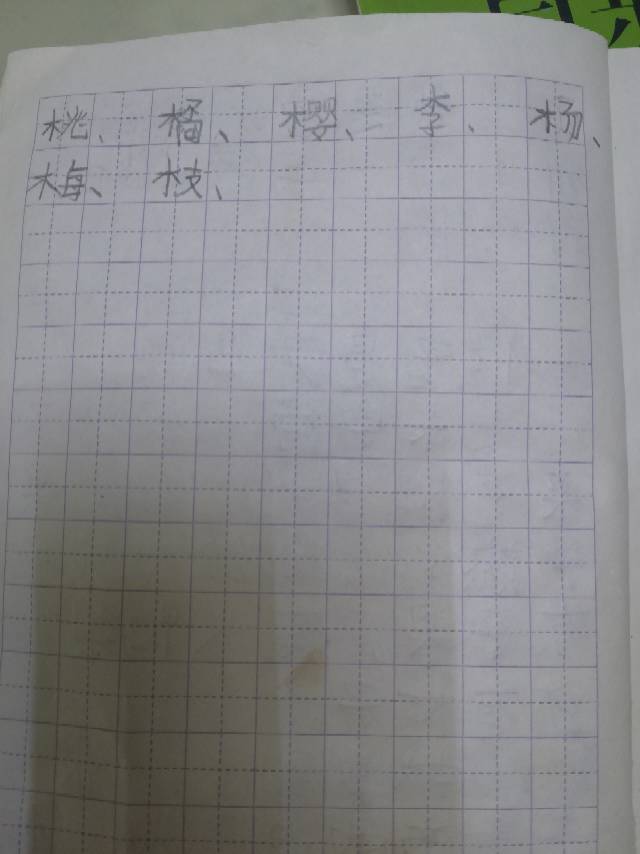 桃、橘、樱、李、杨、
梅、枝、